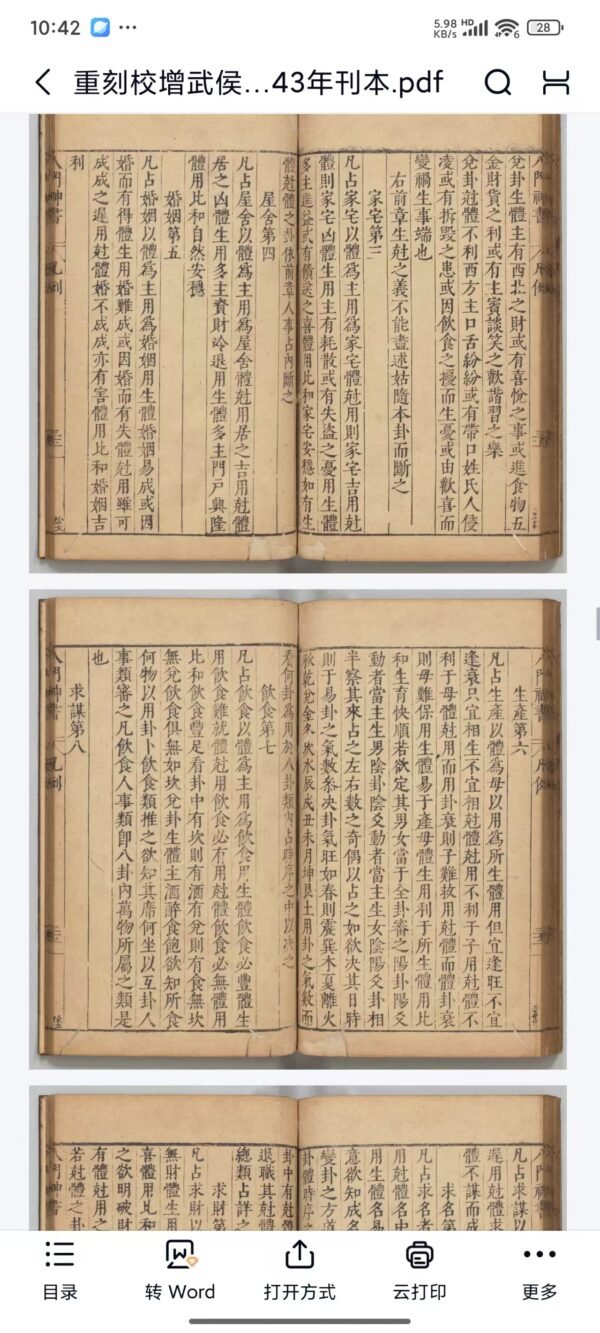 10:42
5.98 KB/s
HD
6
28
重刻校增武侯...43年刊本.pdf
兌卦生體主有西北之財或有喜悅之事或進食物五
金財貨之利或有主賓談笑之歡諧習之樂
兌卦尅體不利西方主口舌紛紛或有帶口姓氏人侵
凌或有拆毀之患或因飲食之擾而生憂或由歡喜而
變禍生事端也
右前章生尅之義不能盡述姑隨本卦而斷之
家宅第三
凡占家宅以體為主用爲家宅體尅用則家宅吉用尅
體則家宅凶體生用主有耗散或有失盜之憂用生體
多主進益或有饋送之喜體用比和家宅安穩如有生
體尅體之卦依前章人事占內斷之
屋舍第四
凡占屋舍以體爲主用爲屋舍體尅用居之吉用尅體
居之凶體生用多主資財冷退用生體多主門戶興隆
體用比和自然安穩
婚姻第五
凡占婚姻以體爲主用爲婚姻用生體婚姻易成或因
婚而有得體生用婚難成或因婚而有失體尅用雖可
成成之遲用尅體婚不成成亦有害體用比和婚姻吉
利
八門神書
生產第六
凡占生產以體爲母以用爲所生體用但宜逢旺不宜
逢衰只宜相生不宜相尅體尅用不利于子用尅體不
利于母體尅用而用卦衰則子難救用尅體而體卦衰
則母難保用生體易于產母體生用利于所生體用比
和生育快順若欲定其男女當于全卦審之陽卦陽爻
動者當主生男陰卦陰爻動者當主生女陰陽爻卦相
半察其來占之左右數之奇偶以占之如欲决其日時
則于易卦之氣數叅决卦氣旺如春則震巽木夏離火
秋乾兌金冬坎水辰戌丑未月坤艮土用卦之氣數而
看何卦爲用於八卦類內占時序之中以决之
飲食第七
凡占飲食以體爲主用爲飲食用生體飲食必豐體生
用飲食難就體尅用飲食必有用尅體飲食必無體用
比和飲食豐足看卦中有坎則有酒有兌則有食無坎
無兌飲食俱無如坎兌卦生體主酒醉食飽欲知所食
何物以用卦卜飲食類推之欲知其席何坐以互卦人
事類審之凡飲食人事類卽八卦內萬物所屬之類是
也
求謀第八
八門神書
凡占求謀以
遲用尅體求
體不謀而成
求名第
凡占求名者
用尅體名
用生體名易
意欲知成名
變卦之方道
卦體時序之
卦中有尅體
退職其尅體
總類占詳之
求財第
凡占求財以
無財體生用
喜體用比和
之欲明破財
有體尅用之
若尅體之卦
八門神書
目录
转 Word
打开方式
云打印
更多